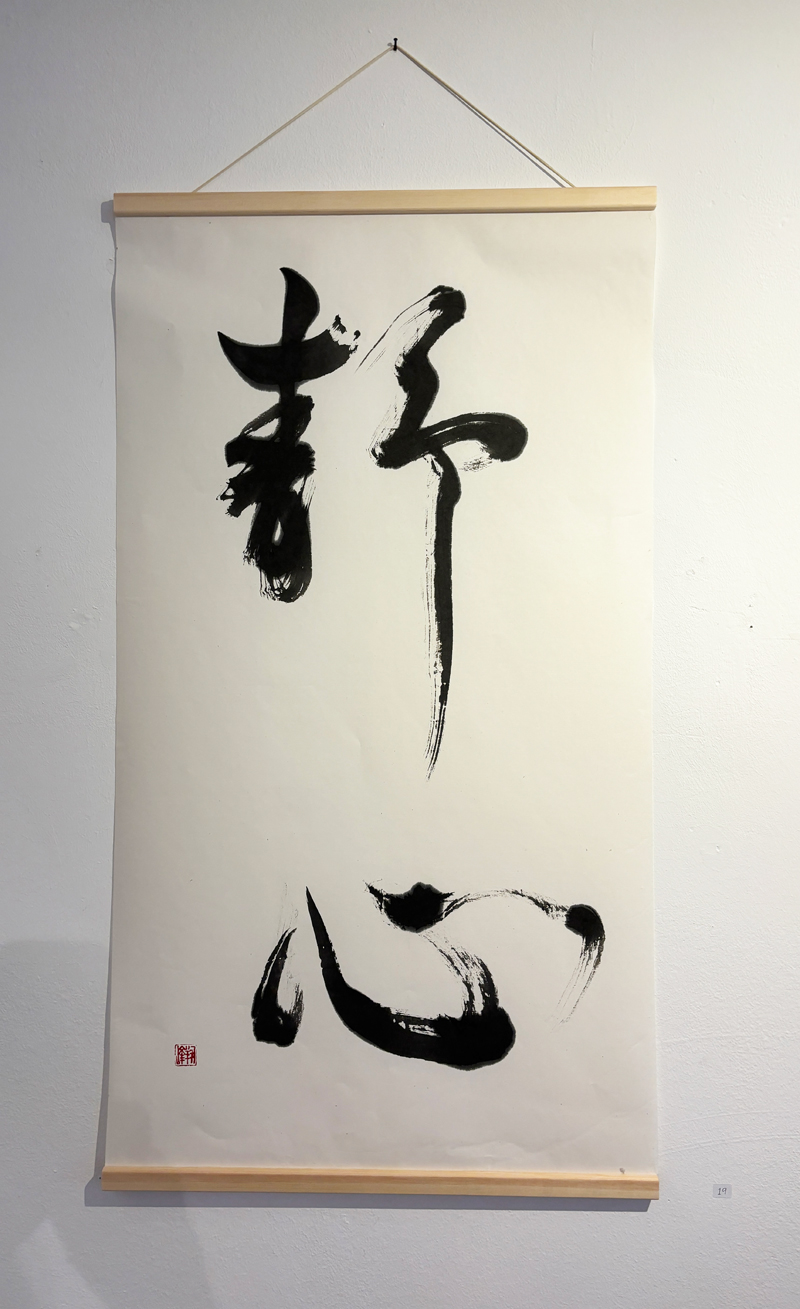 静心
19